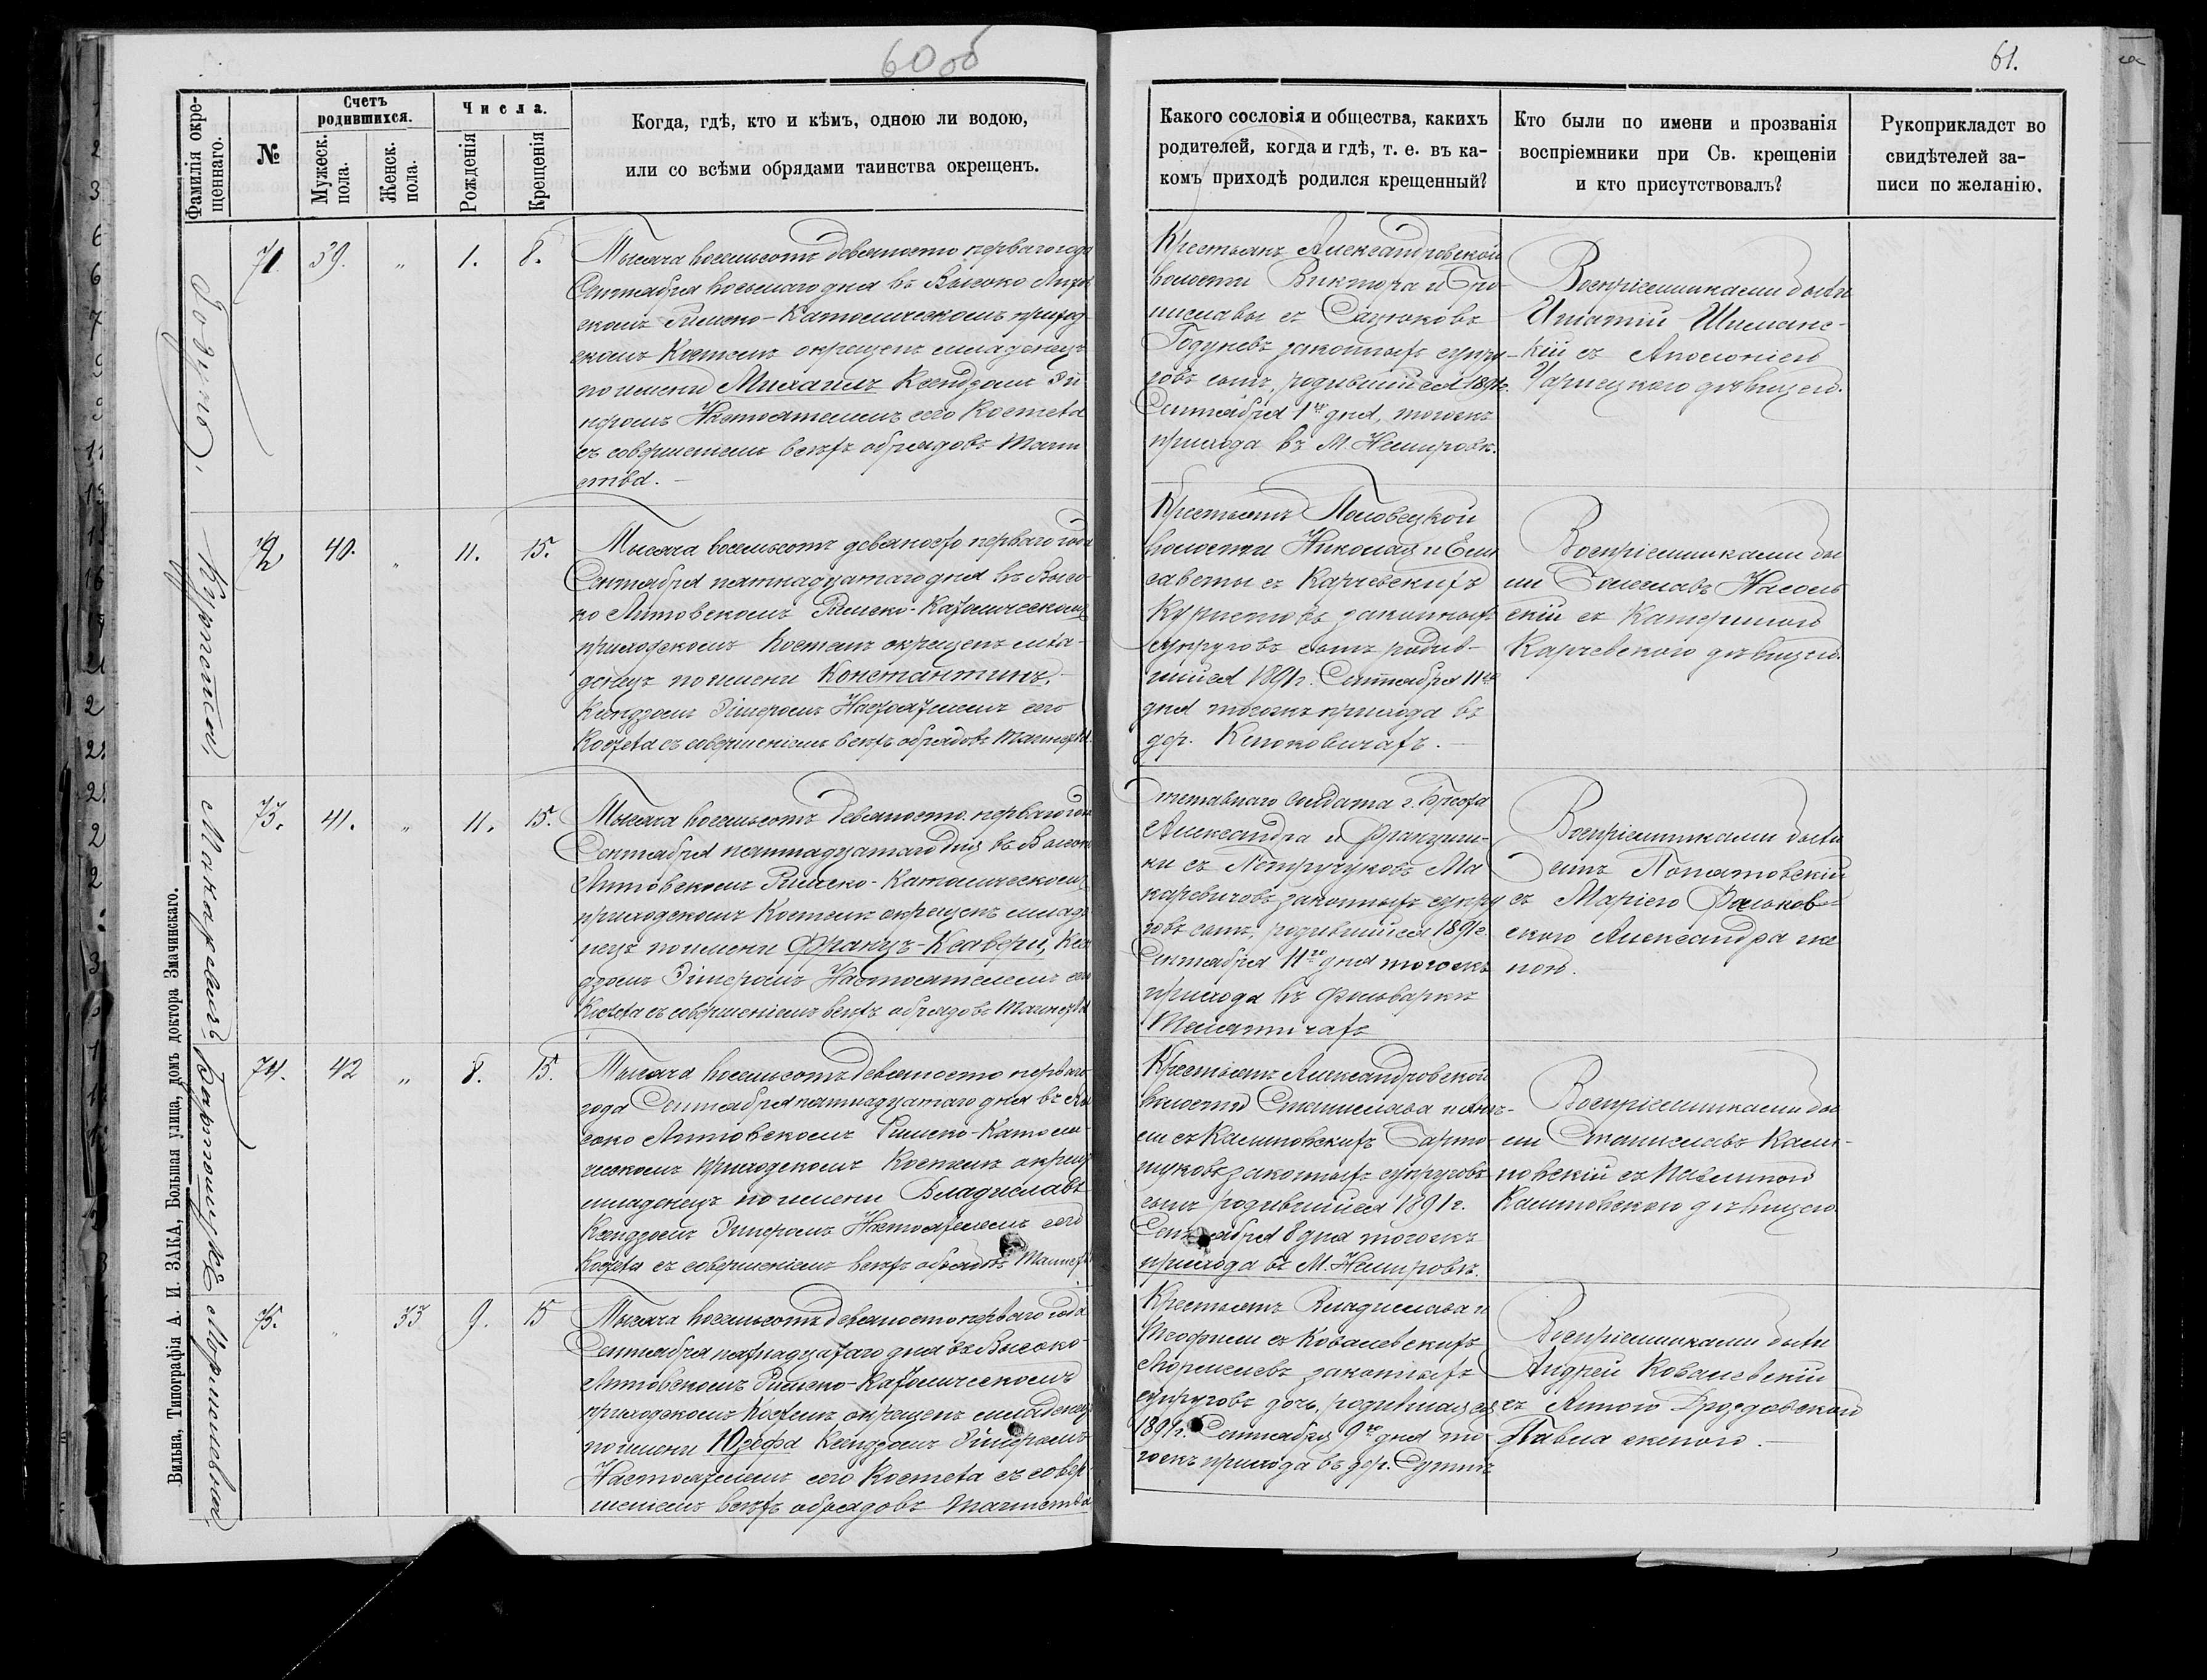 60 об
61.
Фамилія окре-
щеннаго.
№
Счетъ
родившихся.
Мужеск.
пола.
Женск.
пола.
Числа.
Рожденія
Крещенія
Когда, гдѣ, кто и кѣмъ, одною ли водою,
или со всѣми обрядами таинства окрещенъ.
Какого сословія и общества, какихъ
родителей, когда и гдѣ, т. е. въ ка-
комъ приходѣ родился крещенный?
Кто были по имени и прозванія
воспріемники при Св. крещеніи
и кто присутствовалъ?
Рукоприкладст во
свидѣтелей за-
писи по желанію.
71. 39. „ 1. 8.
Тысяча восемьсотъ девяносто перваго года
Сентября восьмаго дня въ Высоко Литов
скомъ Римско-Католическомъ приход-
скомъ Костелѣ окрещенъ младенецъ
по имени Михаилъ Ксендзомъ
Настоятелемъ сего Костела
съ совершеніемъ всѣхъ обрядовъ Таин
ства. —
Крестьянъ Александровской
волости Виктора и Бро-
ниславы съ Сацюковъ
законныхъ супру-
говъ сынъ, родившійся 1891г.
Сентября 1го дня, тогожъ
прихода въ М. Немировѣ.
Воспріемниками были
Игнатій Шиманс-
кій съ Аполоніею
дѣвицею.
72 40. „ 11. 15.
Тысяча восемьсотъ девяносто перваго года
Сентября пятнадцатаго дня въ Высо-
ко Литовскомъ Римско-Католическомъ
приходскомъ Костелѣ окрещенъ мла-
денецъ по имени Константинъ,
Ксендзомъ Настоятелемъ сего
Костела съ совершеніемъ всѣхъ обрядовъ Таинства.
Крестьянъ Половецкой
волости Николая и Ели
саветы съ Карчевскихъ
законныхъ
супруговъ сынъ родив-
шійся 1891г. Сентября 11го
дня тогожъ прихода въ
дер. Клюковичахъ. —
Воспріемниками бы
ли Болеславъ
съ Катериною
Карчевскою дѣвицею.
73. 41. „ 11. 15.
Тысяча восемьсотъ девяносто перваго года
Сентября пятнадцатаго дня въ Высоко
Литовскомъ Римско-Католическомъ
приходскомъ Костелѣ окрещенъ младе
нецъ по имени Францъ-Ксавери, Ксен
дзомъ Настоятелемъ сего
Костела съ совершеніемъ всѣхъ обрядовъ Таинства
Отставнаго Солдата г. Бреста
Александра и Францишки
съ Петручуковъ Ма
каревичовъ законныхъ супру
говъ сынъ, родившійся 1891г.
Сентября 11го дня тогожъ
прихода въ Фольваркѣ
Телятичахъ
Воспріемниками были
Понятовскій
съ Маріею Фальков-
скою Александра же
ною.
74. 42 „ 8. 15.
Тысяча восемьсотъ девяносто перваго
года Сентября пятнадцатаго дня въ Вы
соко Литовскомъ Римско-Католи-
ческомъ приходскомъ Костелѣ окрещ
младенецъ по имени Владиславъ
Ксендзомъ Настоятелемъ сего
Костела съ совершеніемъ всѣхъ обрядовъ Таинств
Крестьянъ Александровской
волости Станислава и
съ Калиновскихъ Барто-
шуковъ законныхъ супруговъ
сынъ родившійся 1891г.
Сентября 8 дня тогожъ
прихода въ М. Немировѣ.
Воспріемниками бы
ли Станиславъ Кали-
новскій съ Павлиною
Калиновскою дѣвицею.
75. „ 33 9. 15
Тысяча восемьсотъ девяносто перваго года
Сентября пятнадцатаго дня въ Высоко-
Литовскомъ Римско-Католическомъ
приходскомъ Костелѣ окрещенъ младенец
по имени Юзефа Ксендзомъ
Настоятелемъ сего Костела съ совер-
шеніемъ всѣхъ обрядовъ Таинства
Крестьянъ Владислава и
Теофили съ Ковалевскихъ
законныхъ
супруговъ дочь, родившаяся
1891г. Сентября 9го дня то
гожъ прихода въ дер. Сутнѣ
Воспріемниками были
Андрей Ковалевскій
съ Анною Дроздовскою
Павла женою. —
Макаревичъ
Бартошукъ
Вильна, Типографія А. И. ЗАКА, Большая улица, домъ доктора Змачинскаго.